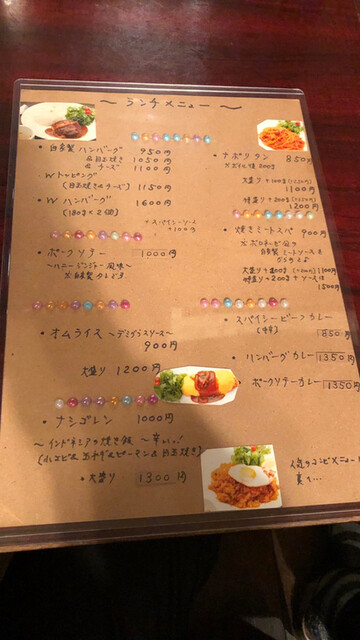 〜 ランチメニュー 〜
・自家製ハンバーグ 950円
&目玉焼き 1050円
&チーズ 1100円
Wトッピング
(目玉焼き&チーズ) 1150円
Wハンバーグ 1600円
(180g×2個)
×スパイシーソース
+100円
・ポークソテー 1000円
〜ハニージンジャー風味〜
☆自家製タレです
・オムライス 〜デミグラスソース〜
900円
大盛り 1200円
・ナシゴレン 1000円
〜インドネシアの焼き飯 〜辛い!〜
(小エビ&玉ネギ&ピーマン&目玉焼き)
・大盛り 1300円
・ナポリタン 850円
×ボイル後300g
大盛り +100g
1100円
特盛り +200g
1200円
・焼きミートスパ 900円
☆ボロネーゼ風の
自家製ミートソースと
大盛り +100g
1100円
特盛り +200g + ソース
1500円
・スパイシービーフカレー
(中辛)
850円
・ハンバーグカレー 1350円
ポークソテーカレー 1350円
人気のコンビメニュー
裏へ…